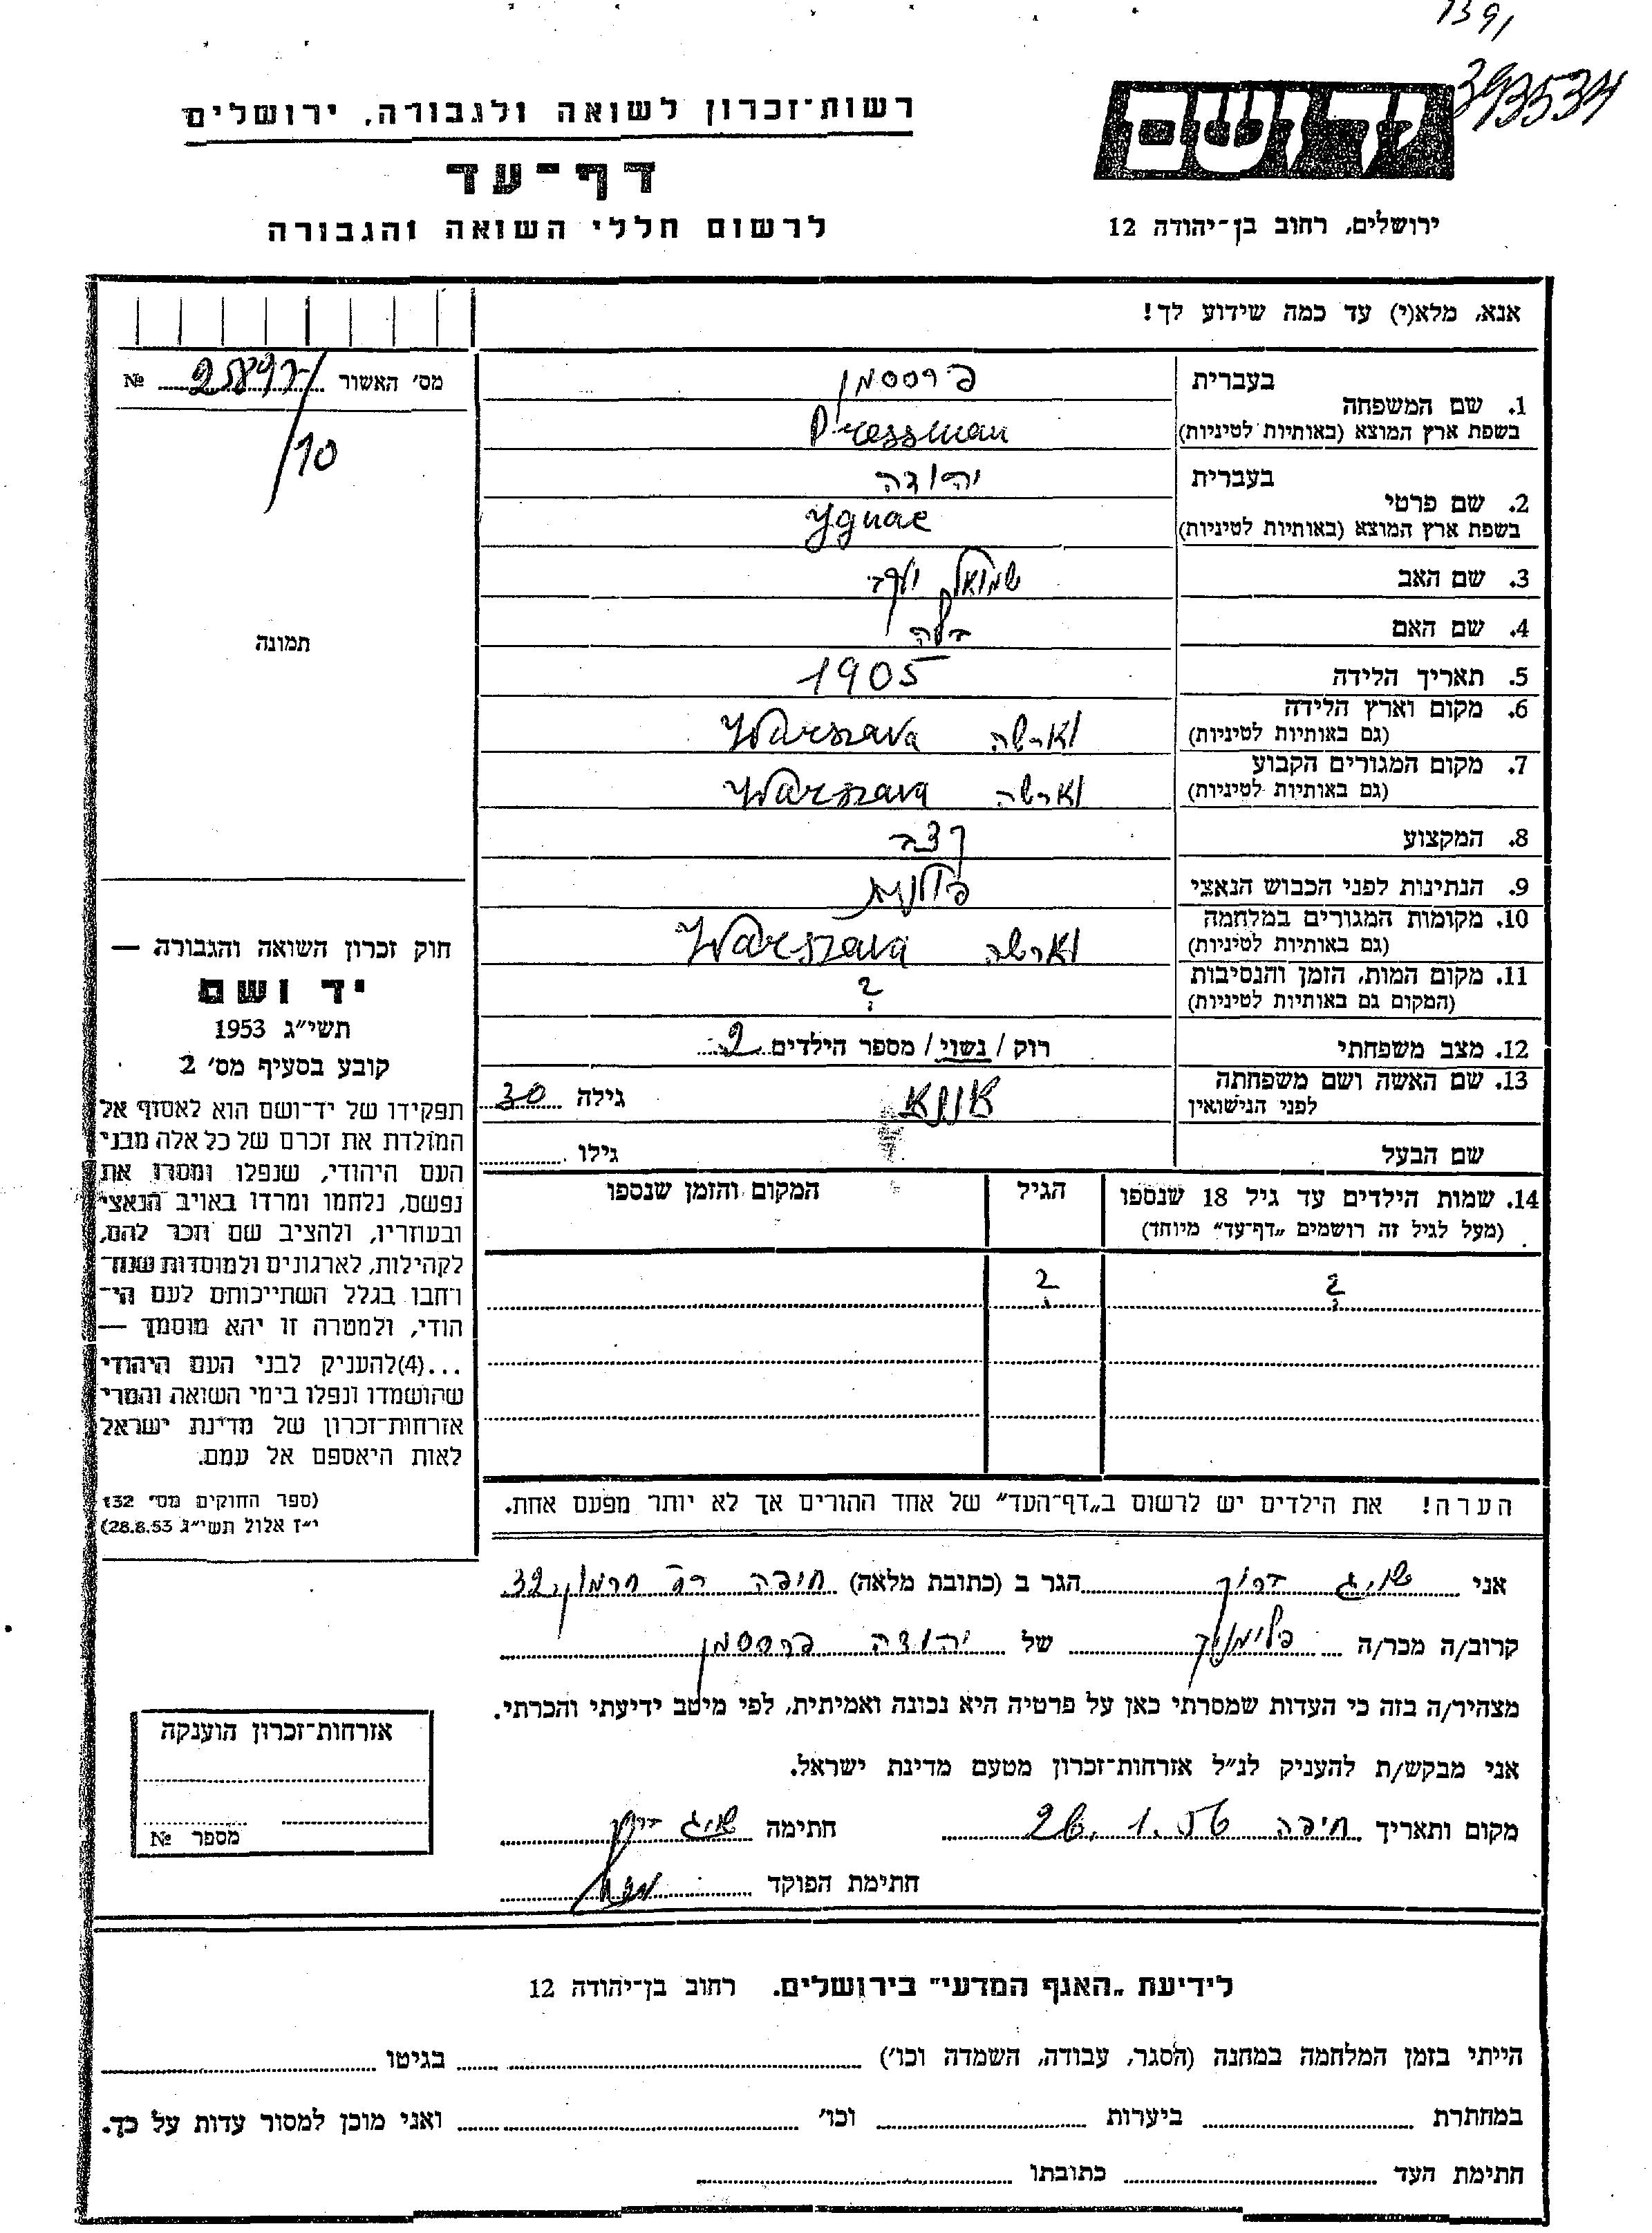 1391
393534
רשות־זכרון לשואה ולגבורה, ירושלים
ידושם
דף־עד
לרשום חללי השואה והגבורה
ירושלים, רחוב בן־יהודה 12
אנא, מלא(י) עד כמה שידוע לך!
מס׳ האשור №
/10
תמונה
1. שם המשפחה בעברית פרססמן
בשפת ארץ המוצא (באותיות לטיניות) Pressman
2. שם פרטי בעברית יהודה
בשפת ארץ המוצא (באותיות לטיניות) Ygnac
3. שם האב שמואל
4. שם האם
5. תאריך הלידה 1905
6. מקום וארץ הלידה (גם באותיות לטיניות) וארשה Warszawa
7. מקום המגורים הקבוע (גם באותיות לטיניות) וארשה Warszawa
8. המקצוע קצב
9. הנתינות לפני הכבוש הנאצי פולנית
10. מקומות המגורים במלחמה (גם באותיות לטיניות) וארשה Warszawa
11. מקום המות, הזמן והנסיבות (המקום גם באותיות לטיניות) ?
12. מצב משפחתי רוק / נשוי / מספר הילדים 2
13. שם האשה ושם משפחתה לפני הנישואין אנא גילה 30
שם הבעל גילו
14. שמות הילדים עד גיל 18 שנספו הגיל המקום והזמן שנספו
(מעל לגיל זה רושמים „דף־עד" מיוחד)
? ?
הערה! את הילדים יש לרשום ב„דף־העד" של אחד ההורים אך לא יותר מפעם אחת.
חוק זכרון השואה והגבורה —
יד ושם
תשי״ג 1953
קובע בסעיף מס׳ 2
תפקידו של יד־ושם הוא לאסוף אל
המולדת את זכרם של כל אלה מבני
העם היהודי, שנפלו ומסרו את
נפשם, נלחמו ומרדו באויב הנאצי
ובעוזריו, ולהציב שם וזכר להם,
לקהילות, לארגונים ולמוסדות שנח־
רחבו בגלל השתייכותם לעם הי־
הודי, ולמטרה זו יהא מוסמך —
...(4)להעניק לבני העם היהודי
שהושמדו ונפלו בימי השואה והמרי
אזרחות־זכרון של מדינת ישראל
לאות היאספם אל עמם.
(ספר החוקים מס׳ 132
י״ז אלול תשי״ג 28.8.53)
אני הגר ב (כתובת מלאה) חיפה 32
קרוב/ה מכר/ה של יהודה פרססמן
מצהיר/ה בזה כי העדות שמסרתי כאן על פרטיה היא נכונה ואמיתית, לפי מיטב ידיעתי והכרתי.
אני מבקש/ת להעניק לנ״ל אזרחות־זכרון מטעם מדינת ישראל.
מקום ותאריך חיפה 26.1.56 חתימה
חתימת הפוקד
אזרחות־זכרון הוענקה
מספר №
לידיעת „האגף המדעי" בירושלים. רחוב בן־יהודה 12
הייתי בזמן המלחמה במחנה (הסגר, עבודה, השמדה וכו׳) בגיטו
במחתרת ביערות וכו׳ ואני מוכן למסור עדות על כך.
חתימת העד כתובתו